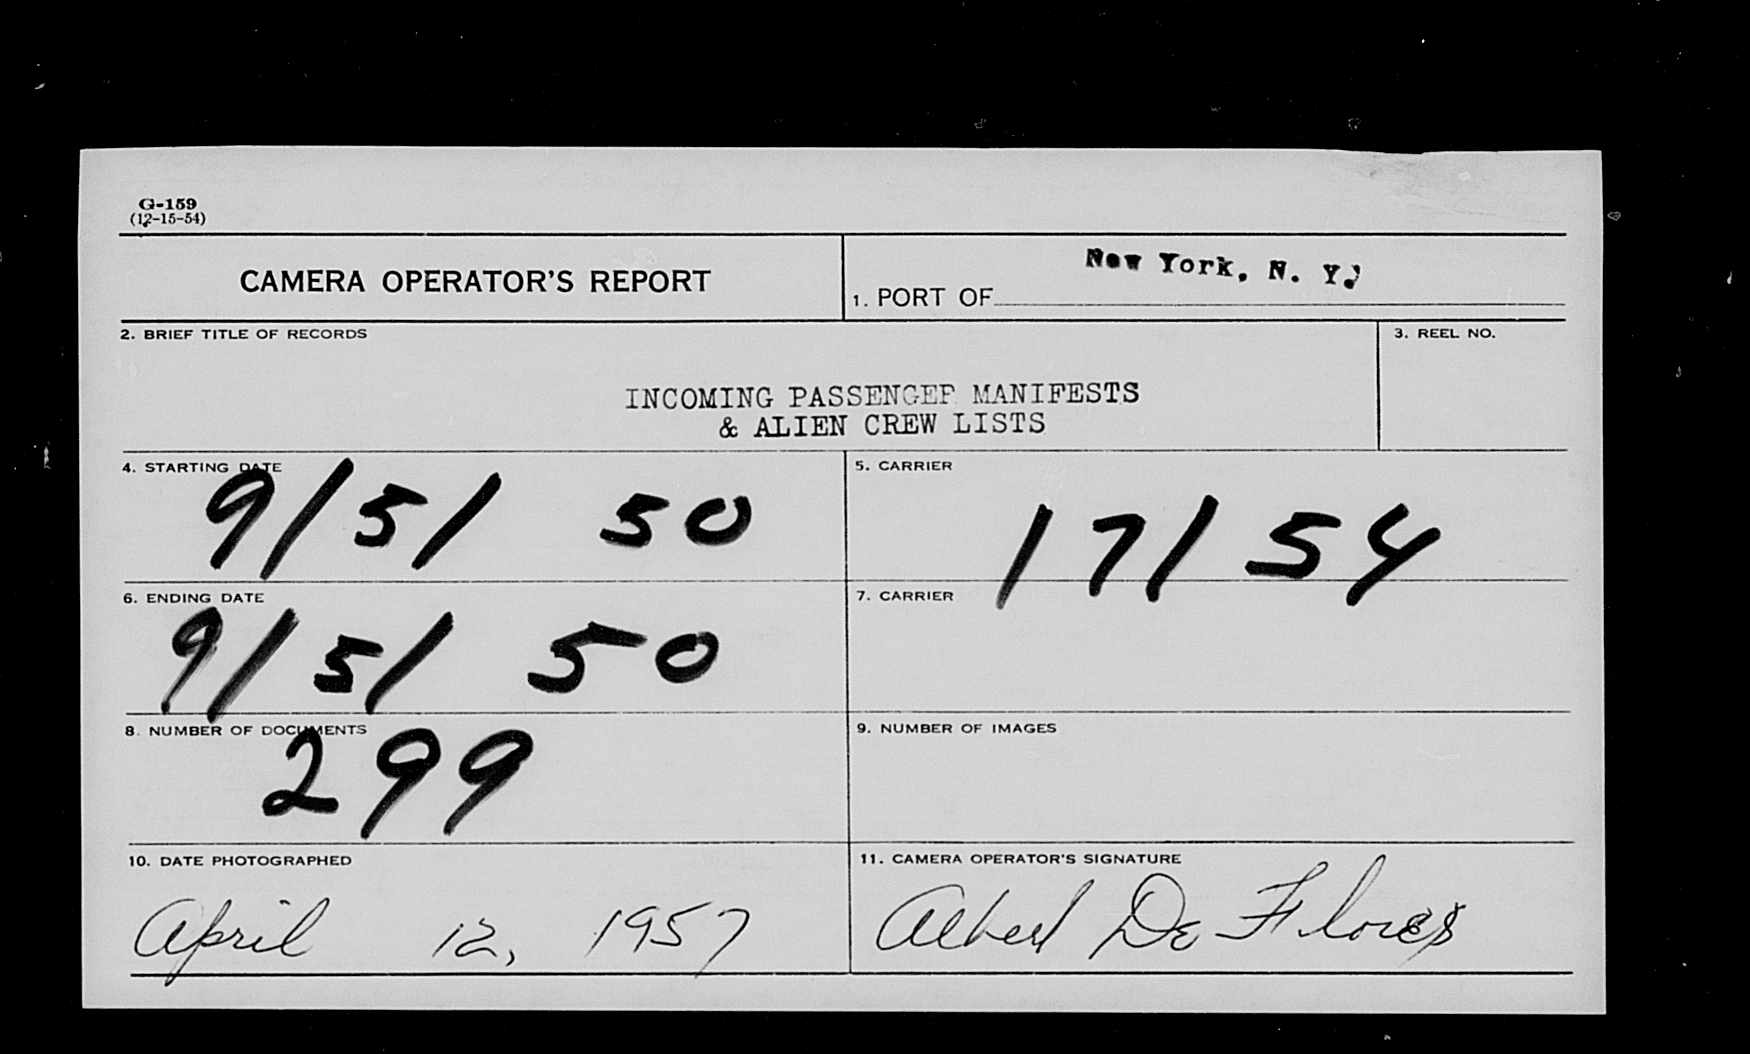 G-159
(12-15-54)
CAMERA OPERATOR'S REPORT
1. PORT OF New York, N. Y.
2. BRIEF TITLE OF RECORDS
3. REEL NO.
INCOMING PASSENGER MANIFESTS
& ALIEN CREW LISTS
4. STARTING DATE
9/5/ 50
5. CARRIER
17/54
6. ENDING DATE
9/5/ 50
7. CARRIER
8. NUMBER OF DOCUMENTS
299
9. NUMBER OF IMAGES
10. DATE PHOTOGRAPHED
April 12, 1957
11. CAMERA OPERATOR'S SIGNATURE
Albert De Flores